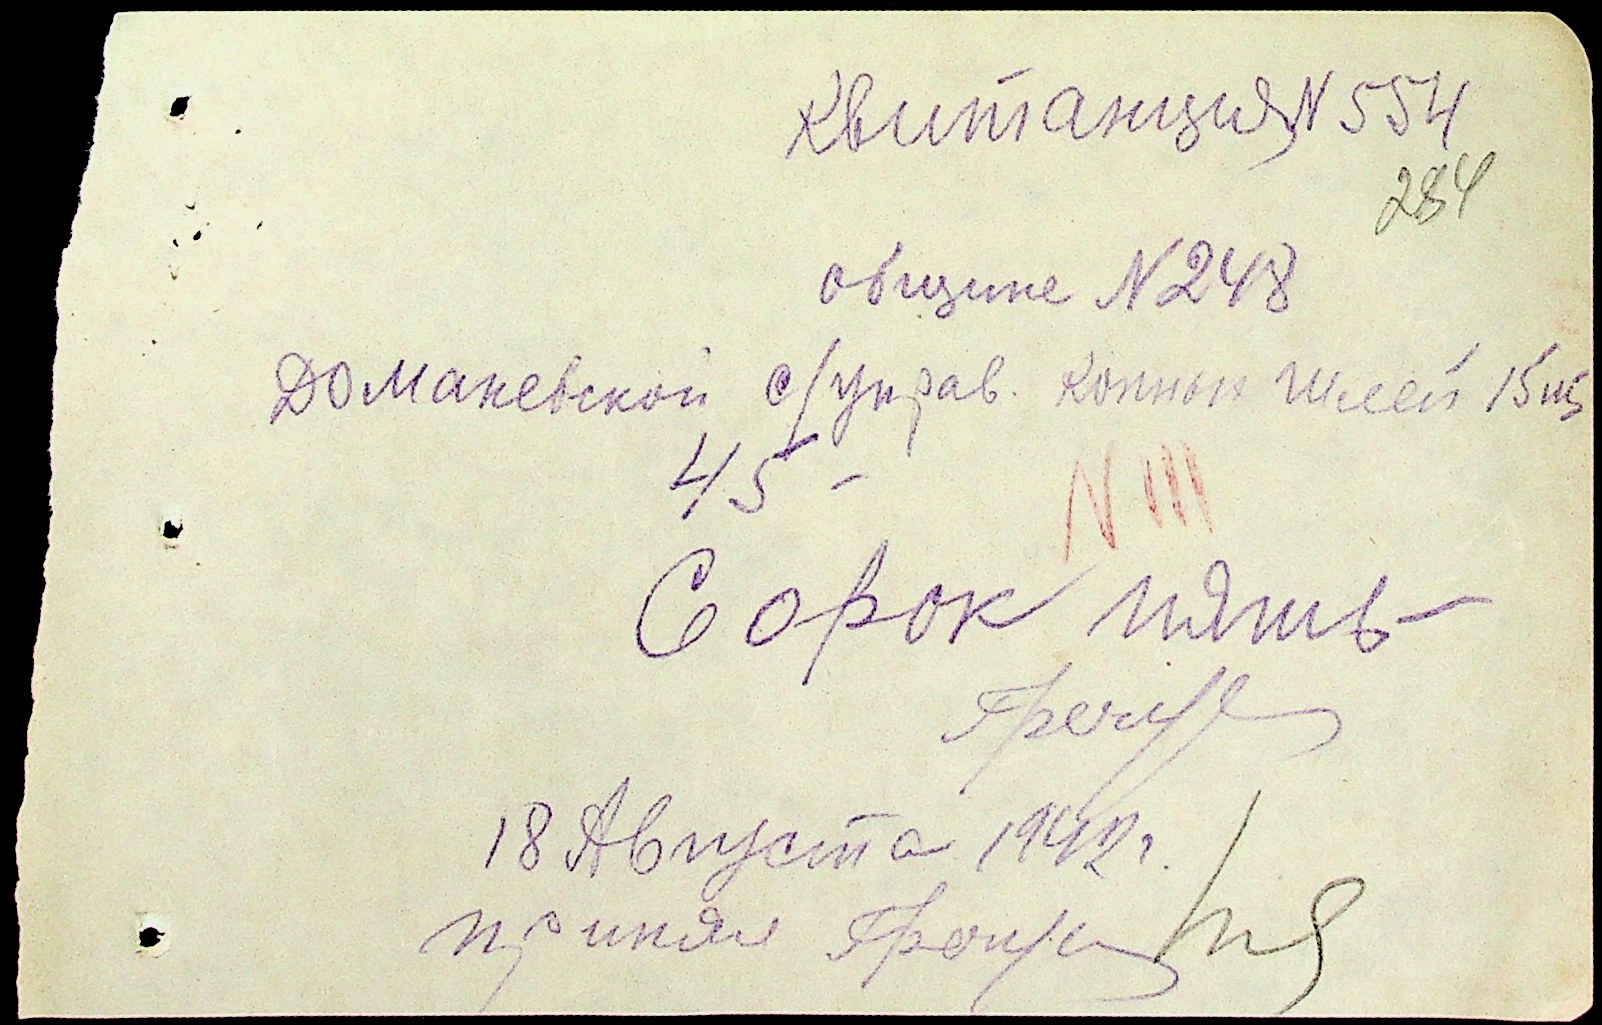 Квитанция N 554
284
общине N 248
Доманевской с/управ. конных шлей 15 шт
45 -
N III
Сорок пять
18 Августа 1942 г.
принял